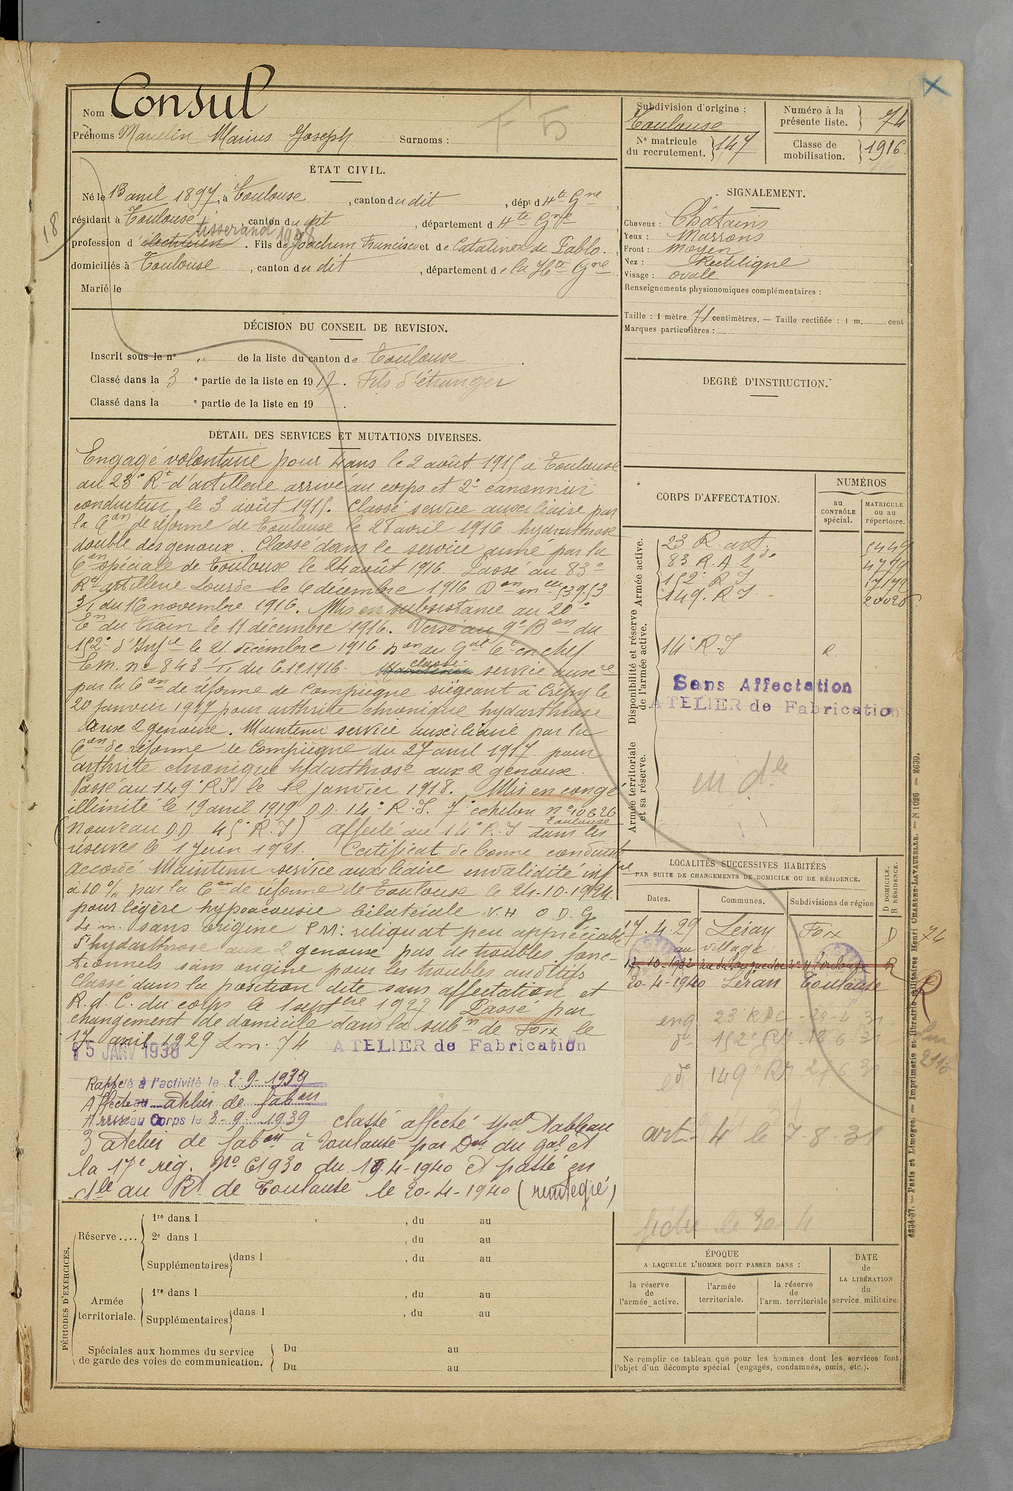 Nom Consul
Prénoms Marcelin Marius Joseph Surnoms :
F 5
ÉTAT CIVIL.
Né le 13 avril 1897, à Toulouse, canton du dit, dépt d Hte Gne
résidant à Toulouse, canton du dit, département d Hte Gne
tisserand 1938
profession d'électricien. Fils de Joachim Francisco et de Catalina de Pablo.
domiciliés à Toulouse, canton du dit, département de la Hte Gne
Marié le
18
DÉCISION DU CONSEIL DE REVISION.
Inscrit sous le n° „ de la liste du canton de Toulouse
Classé dans la 3 e partie de la liste en 1917. Fils d'étranger
Classé dans la e partie de la liste en 19 .
DÉTAIL DES SERVICES ET MUTATIONS DIVERSES.
Engagé volontaire pour 4 ans le 2 août 1915 à Toulouse
au 23e Rt d'artillerie arrivé au corps et 2e canonnier
conducteur, le 3 août 1915. Classé service auxiliaire par
la Con de réforme de Toulouse le 28 avril 1916 hydarthrose
double des genoux. Classé dans le service armé par la
Con spéciale de Toulouse le 24 août 1916. Passé au 83e
Rt artillerie Lourde le 6 décembre 1916 Don mlle 53953
3/1 du 16 novembre 1916. Mis en subsistance au 20e
Eon du train le 11 décembre 1916. Versé au 9e Bon du
152e d'Infie le 21 décembre 1916 Don du Gal Ct en chef
E.m. n° 843 /1 du 6.12.1916. classé service auxre
par la Con de réforme de Compiègne siégeant à Crépy le
20 janvier 1917 pour arthrite chronique hydarthrose
deux genoux. Maintenu service auxiliaire par la
Con de réforme de Compiègne du 27 avril 1917 pour
arthrite chronique hydarthrose aux 2 genoux.
Passé au 149e R.I. le 12 janvier 1918. Mis en congé
illimité le 19 avril 1919 D.D. 14e R.I. 7e échelon n° 10626
Toulouse
(nouveau D.D. 45 R.I) affecté au 14e R.I dans les
réserves le 1 juin 1921. Certificat de bonne conduite
accordé Maintenu service auxiliaire invalidité infre
à 10 % par la Con de réforme de Toulouse le 24-10-1924
pour légère hypoacousie bilatérale V.H O.D.G
4 m. sans origine P.M. reliquat peu appréciable
d'hydarthrose aux 2 genoux pas de troubles fonc-
tionnels sans origine pour les troubles auditifs
Classé dans la position dite sans affectation et
R.d.C. du corps le 1 septbre 1927. Passé par
changement de domicile dans la subon de Foix le
17 avril 1929 Lm. 74
15 JANV 1938 ATELIER de Fabrication
Rappelé à l'activité le 2.9.1939
Affecté au atelier de fabon
Arrivé au Corps le 3-9-1939 classé affecté spal Tableau
3 atelier de fabon à Toulouse par Don du gal ct
la 17e rég. No 61930 du 19.4-1940 et passé en
dle au Rt de Toulouse le 20-4-1940 (réintégré)
PÉRIODES D'EXERCICES.
Réserve....
1re dans l , du au
2e dans l , du au
Supplémentaires dans l , du au
Armée territoriale.
1re dans l , du au
Supplémentaires dans l , du au
Spéciales aux hommes du service
de garde des voies de communication.
Du au
Du au
Subdivision d'origine :
Toulouse
N° matricule du recrutement. 147
Numéro à la présente liste. 74
Classe de mobilisation. 1916.
SIGNALEMENT.
Cheveux : Châtains
Yeux : Marrons
Front : moyen
Nez : Rectiligne
Visage : ovale
Renseignements physionomiques complémentaires :
Taille : 1 mètre 71 centimètres. — Taille rectifiée : 1 m. cent
Marques particulières :
DEGRÉ D'INSTRUCTION.
CORPS D'AFFECTATION.
NUMÉROS
au CONTRÔLE spécial.
MATRICULE ou au répertoire.
Armée active.
23 R. art. 5449
83 R.A.Lde 4779
152e R.I 17172
149. R.I 20028
Disponibilité et réserve de l'armée active.
14e R.I
Sans Affectation
ATELIER de Fabrication
Armée territoriale et sa réserve.
en dle
LOCALITÉS SUCCESSIVES HABITÉES
PAR SUITE DE CHANGEMENTS DE DOMICILE OU DE RÉSIDENCE.
Dates. Communes. Subdivisions de région D DOMICILE. R RÉSIDENCE.
17.4.29 Léran Foix D 74
au village
20-4-1940 Léran Toulouse R
eng 23 RAC 29-4-31
de 152e RI 18 6 31
de 149e RI 27 6 31
artl 4 le 7.8.31
fiche le 30 4
ÉPOQUE
A LAQUELLE L'HOMME DOIT PASSER DANS :
la réserve de l'armée active.
l'armée territoriale.
la réserve de l'arm. territoriale
DATE de LA LIBÉRATION du service militaire.
Ne remplir ce tableau que pour les hommes dont les services font
l'objet d'un décompte spécial (engagés, condamnés, omis, etc.).
6234-37. — Paris et Limoges. — Imprimerie et librairie militaires Henri CHARLES-LAVAUZELLE. — N° 1026 — 2030.